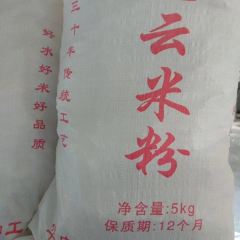 好水好米好品质
三十年传统工艺
云米粉
净含量:5kg
保质期:12个月